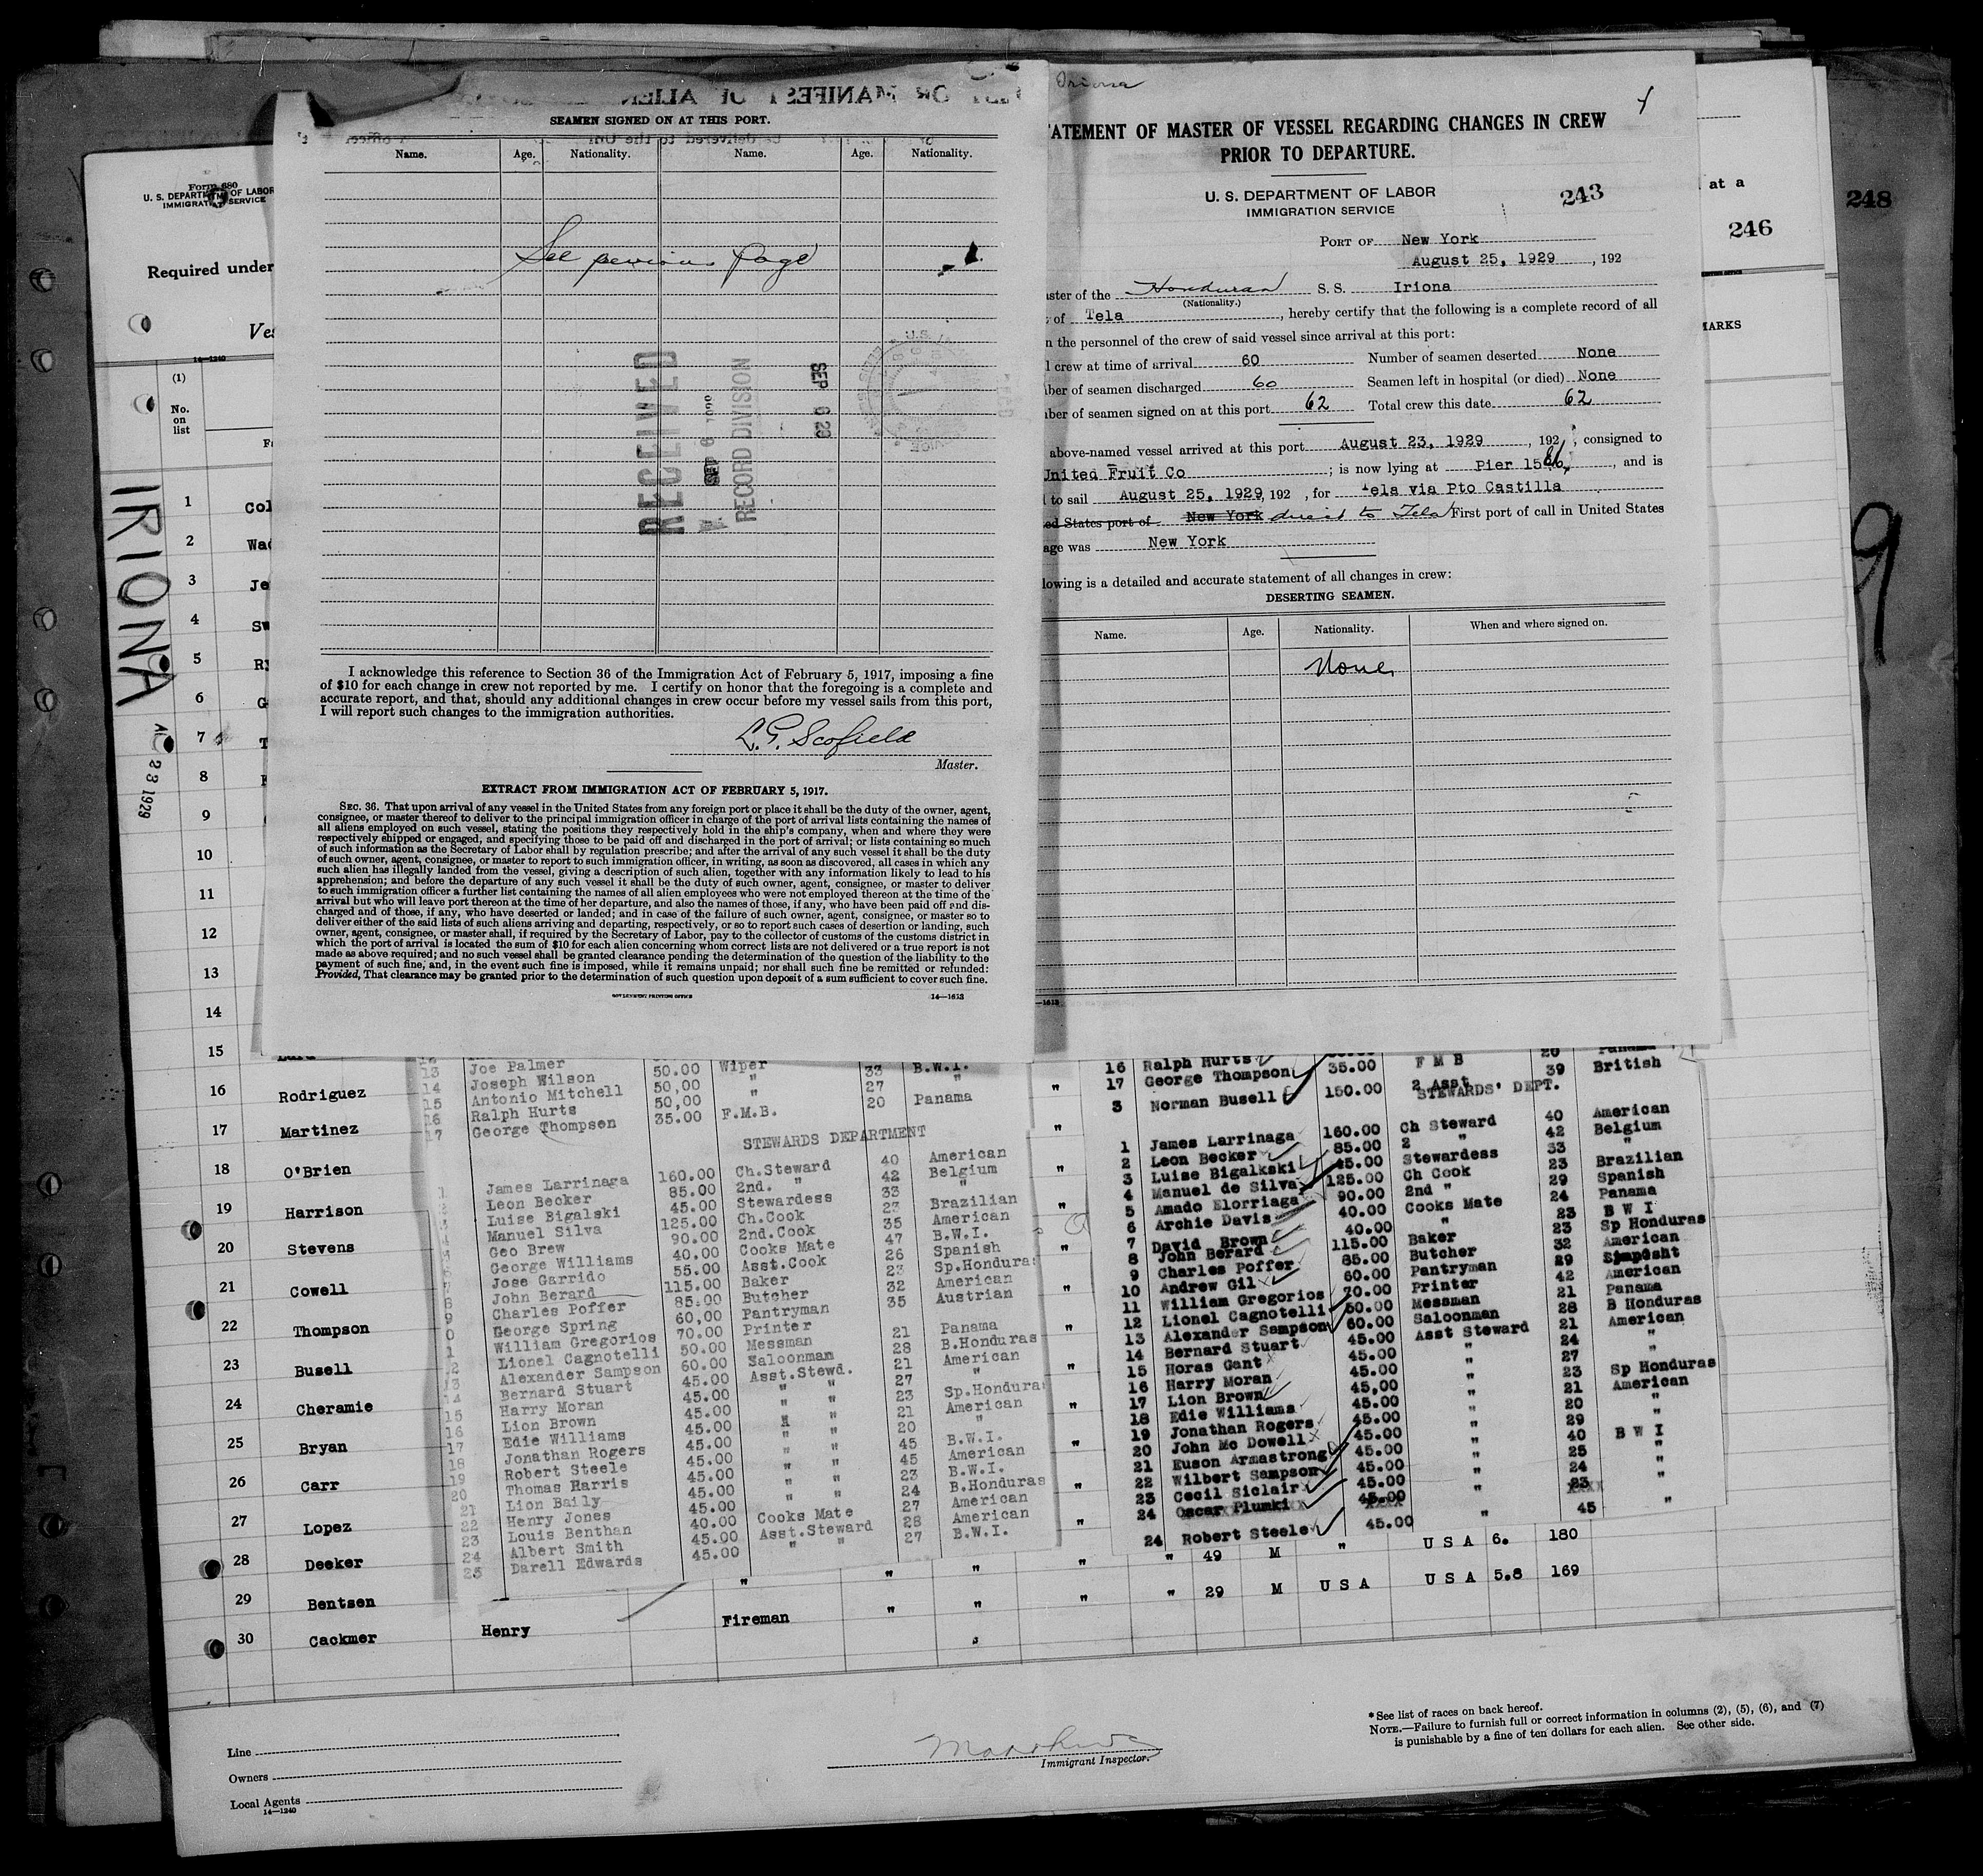 SEAMEN SIGNED ON AT THIS PORT.
Name. Age. Nationality. Name. Age. Nationality.
See previous page
RECEIVED
RECORD DIVISION
SEP 6 29
I acknowledge this reference to Section 36 of the Immigration Act of February 5, 1917, imposing a fine
of $10 for each change in crew not reported by me. I certify on honor that the foregoing is a complete and
accurate report, and that, should any additional changes in crew occur before my vessel sails from this port,
I will report such changes to the immigration authorities.
L. G. Scofield
Master.
EXTRACT FROM IMMIGRATION ACT OF FEBRUARY 5, 1917.
SEC. 36. That upon arrival of any vessel in the United States from any foreign port or place it shall be the duty of the owner, agent,
consignee, or master thereof to deliver to the principal immigration officer in charge of the port of arrival lists containing the names of
all aliens employed on such vessel, stating the positions they respectively hold in the ship's company, when and where they were
respectively shipped or engaged, and specifying those to be paid off and discharged in the port of arrival; or lists containing so much
of such information as the Secretary of Labor shall by regulation prescribe; and after the arrival of any such vessel it shall be the duty
of such owner, agent, consignee, or master to report to such immigration officer, in writing, as soon as discovered, all cases in which any
such alien has illegally landed from the vessel, giving a description of such alien, together with any information likely to lead to his
apprehension; and before the departure of any such vessel it shall be the duty of such owner, agent, consignee, or master to deliver
to such immigration officer a further list containing the names of all alien employees who were not employed thereon at the time of the
arrival but who will leave port thereon at the time of her departure, and also the names of those, if any, who have been paid off and dis-
charged and of those, if any, who have deserted or landed; and in case of the failure of such owner, agent, consignee, or master so to
deliver either of the said lists of such aliens arriving and departing, respectively, or so to report such cases of desertion or landing, such
owner, agent, consignee, or master shall, if required by the Secretary of Labor, pay to the collector of customs of the customs district in
which the port of arrival is located the sum of $10 for each alien concerning whom correct lists are not delivered or a true report is not
made as above required; and no such vessel shall be granted clearance pending the determination of the question of the liability to the
payment of such fine, and, in the event such fine is imposed, while it remains unpaid; nor shall such fine be remitted or refunded:
Provided, That clearance may be granted prior to the determination of such question upon deposit of a sum sufficient to cover such fine.
GOVERNMENT PRINTING OFFICE 14—1613
Iriona
ATEMENT OF MASTER OF VESSEL REGARDING CHANGES IN CREW
PRIOR TO DEPARTURE.
U. S. DEPARTMENT OF LABOR
IMMIGRATION SERVICE
243
PORT OF New York
August 25, 1929, 192
ster of the Honduran S. S. Iriona
(Nationality.)
of Tela, hereby certify that the following is a complete record of all
n the personnel of the crew of said vessel since arrival at this port:
l crew at time of arrival 60 Number of seamen deserted None
ber of seamen discharged 60 Seamen left in hospital (or died) None
ber of seamen signed on at this port 62 Total crew this date 62
above-named vessel arrived at this port August 23, 1929, 192 , consigned to
United Fruit Co ; is now lying at Pier 15 , and is
to sail August 25, 1929, 192 , for Tela via Pto Castilla
ed States port of New York direct to Tela First port of call in United States
age was New York
lowing is a detailed and accurate statement of all changes in crew:
DESERTING SEAMEN.
Name. Age. Nationality. When and where signed on.
None
at a
246
248
MARKS
9
Form 680
U. S. DEPARTMENT OF LABOR
IMMIGRATION SERVICE
Required under
Ves
14—1240
(1)
No.
on
list
IRIONA
23 1929
1 Col
2 Wad
3 Je
4 Sw
5 Ry
6 G
7 T
8
9
10
11
12
13
14
15
16 Rodriguez
17 Martinez
18 O'Brien
19 Harrison
20 Stevens
21 Cowell
22 Thompson
23 Busell
24 Cheramie
25 Bryan
26 Carr
27 Lopez
28 Deeker " " " " " 49 M " U S A 6. 180
29 Bentsen " " " " 29 M U S A U S A 5.8 169
30 Cackmer Henry Fireman
13 Joe Palmer 50.00 Wiper 33 B.W.I.
14 Joseph Wilson 50,00 " 27 "
15 Antonio Mitchell 50,00 " 20 Panama
16 Ralph Hurts 35.00 F.M.B.
17 George Thompson
STEWARDS DEPARTMENT
1 James Larrinaga 160.00 Ch.Steward 40 American
Leon Becker 85.00 2nd. " 42 Belgium
Luise Bigalski 45.00 Stewardess 33 "
Manuel Silva 125.00 Ch.Cook 23 Brazilian
Geo Brew 90.00 2nd.Cook 35 American
George Williams 40.00 Cooks Mate 47 B.W.I.
Jose Garrido 55.00 Asst.Cook 26 Spanish
John Berard 115.00 Baker 23 Sp.Honduras
9 Charles Poffer 85.00 Butcher 32 American
0 George Spring 60,00 Pantryman 35 Austrian
1 William Gregorios 70.00 Printer
12 Lionel Cagnotelli 50.00 Messman 21 Panama
13 Alexander Sampson 60.00 Saloonman 28 B.Honduras
14 Bernard Stuart 45.00 Asst.Stewd. 21 American
15 Harry Moran 45.00 " " 27 "
16 Lion Brown 45.00 " " 23 Sp.Honduras
17 Edie Williams 45.00 " " 21 American
18 Jonathan Rogers 45.00 " " 20 "
19 Robert Steele 45.00 " " 45 B.W.I.
20 Thomas Harris 45.00 " " 45 American
21 Lion Baily 45.00 " " 23 B.W.I.
22 Henry Jones 45.00 " " 24 B.Honduras
23 Louis Benthan 40.00 Cooks Mate 27 American
24 Albert Smith 45.00 Asst.Steward 28 American
25 Darell Edwards 45.00 " " 27 B.W.I.
16 Ralph Hurts 35.00 F M B 20 Panama
17 George Thompson 39 British
3 Norman Busell 150.00 2 Asst
STEWARDS' DEPT.
1 James Larrinaga 160.00 Ch Steward 40 American
2 Leon Becker 85.00 2 " 42 Belgium
3 Luise Bigalkski 45.00 Stewardess 33 "
4 Manuel de Silva 125.00 Ch Cook 23 Brazilian
5 Amado Elorriaga 90.00 2nd " 29 Spanish
6 Archie Davis 40.00 Cooks Mate 24 Panama
7 David Brown 40.00 " 23 B W I
8 John Berard 115.00 Baker 23 Sp Honduras
9 Charles Poffer 85.00 Butcher 32 American
10 Andrew Gil 60.00 Pantryman 29
11 William Gregorios 70.00 Printer 42 American
12 Lionel Cagnotelli 50.00 Messman 21 Panama
13 Alexander Sampson 60.00 Saloonman 28 B Honduras
14 Bernard Stuart 45.00 Asst Steward 21 American
15 Horas Gant 45.00 " 24 "
16 Harry Moran 45.00 " 27 "
17 Lion Brown 45.00 " 23 Sp Honduras
18 Edie Williams 45,00 " 21 American
19 Jonathan Rogers 45.00 " 20 "
20 John Mc Dowell 45.00 " 29 "
21 Euson Armastrong 45.00 " 40 B W I
22 Wilbert Sampson 45.00 " 25 "
23 Cecil Siclair 45.00 " 24 "
24 Oscar Plumki 45.00 " 23 "
24 Robert Steele 45.00 " 45 "
Line
Owners
Local Agents
14—1240
Immigrant Inspector.
* See list of races on back hereof.
NOTE.—Failure to furnish full or correct information in columns (2), (5), (6), and (7)
is punishable by a fine of ten dollars for each alien. See other side.